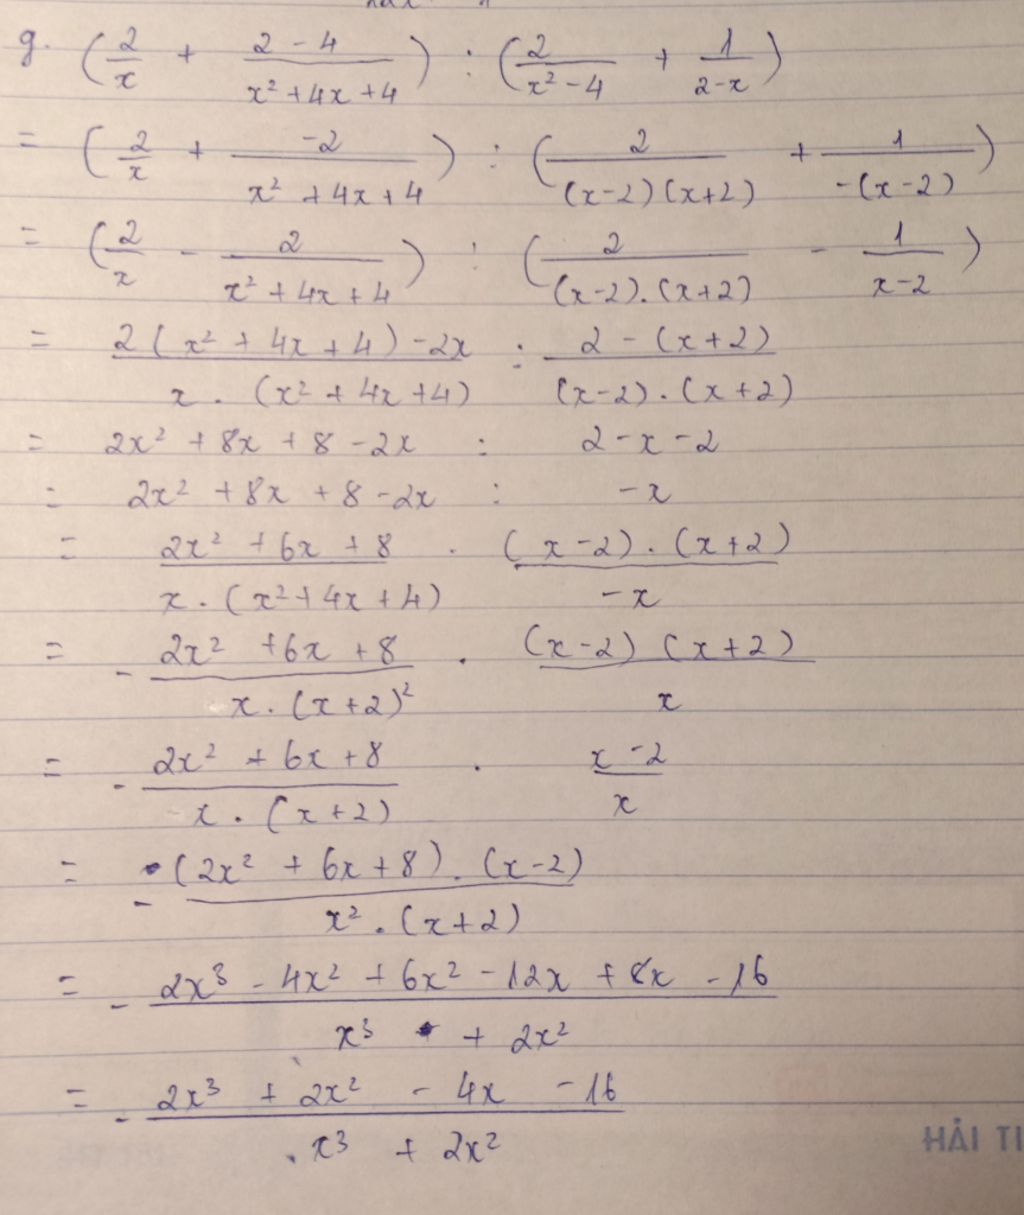 g. (2/x + (2 - 4)/(x² + 4x + 4)) : (2/(x² - 4) + 1/(2 - x))
= (2/x + -2/(x² + 4x + 4)) : (2/((x-2)(x+2)) + 1/(-(x-2)))
= (2/x - 2/(x² + 4x + 4)) : (2/((x-2).(x+2)) - 1/(x-2))
= (2(x² + 4x + 4) - 2x)/(x . (x² + 4x + 4)) : (2 - (x+2))/((x-2).(x+2))
= 2x² + 8x + 8 - 2x : 2 - x - 2
= 2x² + 8x + 8 - 2x : -x
= (2x² + 6x + 8)/(x . (x² + 4x + 4)) . ((x-2).(x+2))/(-x)
= - (2x² + 6x + 8)/(x . (x+2)²) . ((x-2)(x+2))/x
= - (2x² + 6x + 8)/(x . (x+2)) . (x-2)/x
= - ((2x² + 6x + 8).(x-2))/(x² . (x+2))
= - (2x³ - 4x² + 6x² - 12x + 8x - 16)/(x³ + 2x²)
= - (2x³ + 2x² - 4x - 16)/(x³ + 2x²)
HẢI TI